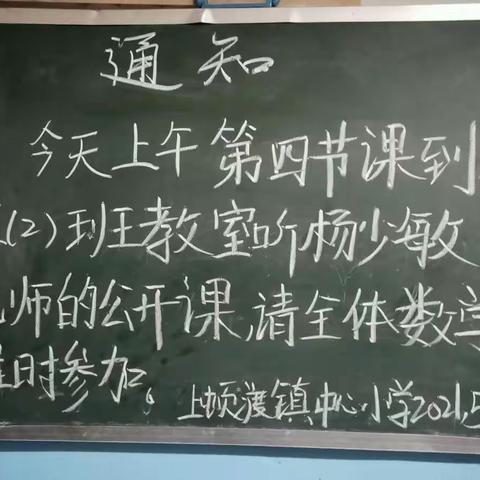 通知
今天上午第四节课到
(2)班教室听杨少敏
师的公开课,请全体数学
时参加。
上顿渡镇中心小学2021.5